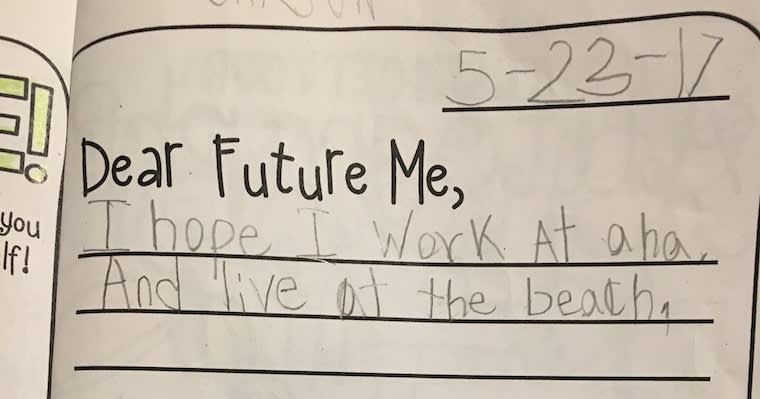 5-23-17
E!
Dear Future Me,
you
lf!
I hope I Work At aha.
And live at the beach,